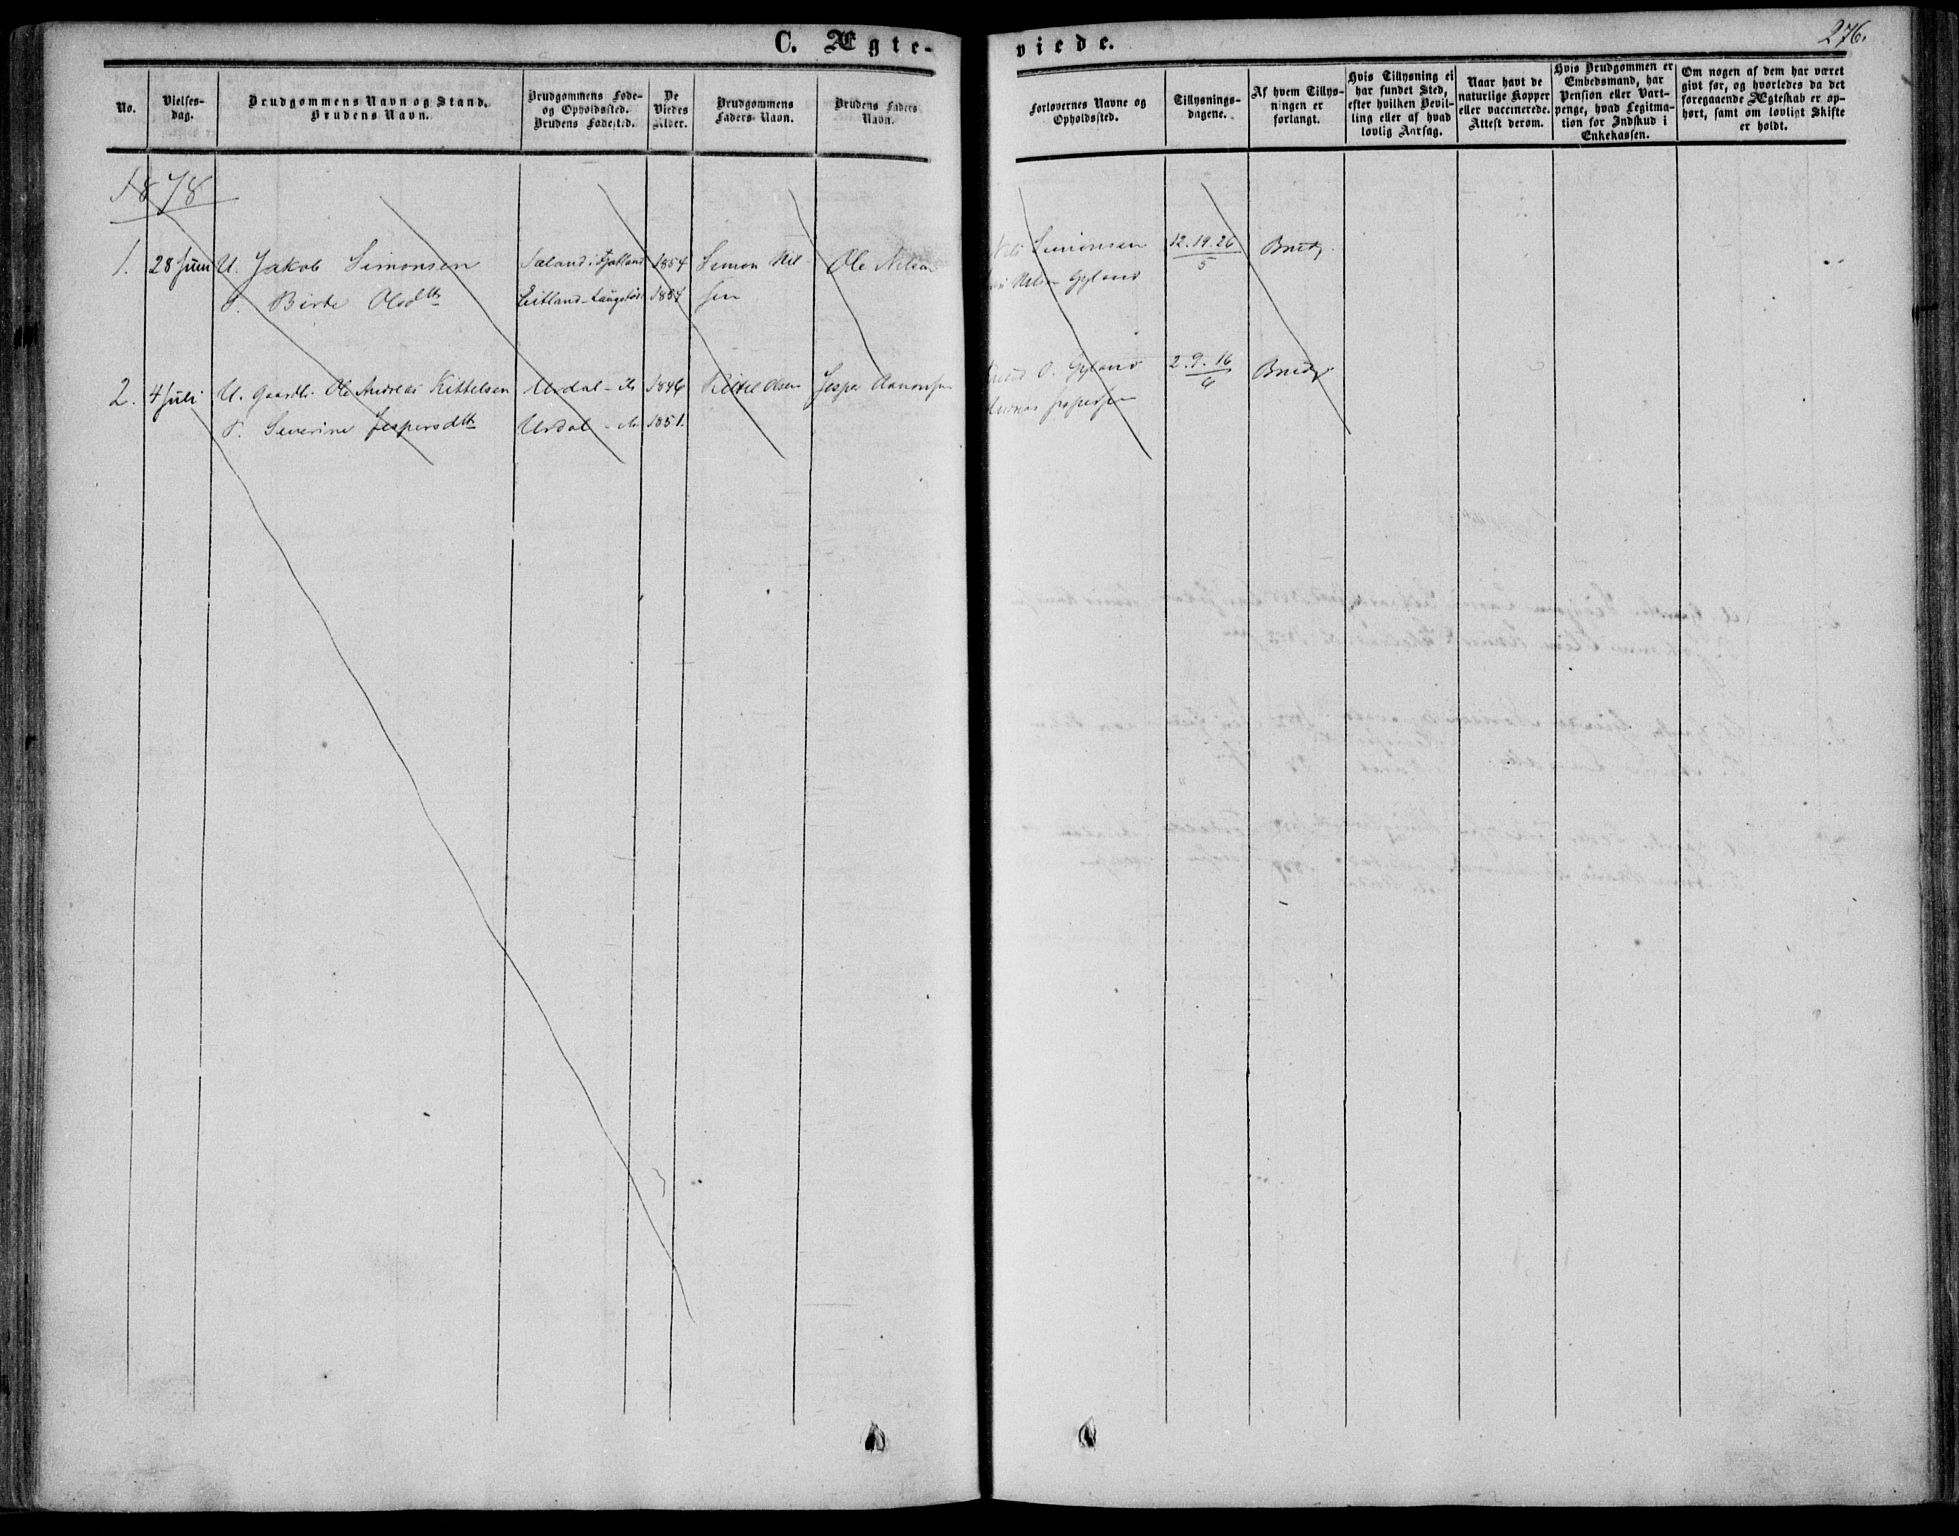 C. Ægte-
viede.
276.
No.
Vielses-
dag.
Brudgommens Navn og Stand.
Brudens Navn.
Brudgommens Føde-
og Opholdssted.
Brudens Fødested.
De
Viedes
Alder.
Brudgommens
Faders Navn.
Brudens Faders
Navn.
Forlovernes Navne og
Opholdssted.
Tillysnings-
dagene.
Af hvem Tillys-
ningen er
forlangt.
Hvis Tillysning ei
har fundet Sted,
efter hvilken Bevil-
ling eller af hvad
lovlig Aarsag.
Naar havt de
naturlige Kopper
eller vaccinerede.
Attest derom.
Hvis Brudgommen er
Embedsmand, har
Pension eller Vart-
penge, hvad Legitima-
tion for Indskud i
Enkekassen.
Om nogen af dem har været
givt før, og hvorledes da det
foregaaende Ægteskab er op-
hørt, samt om lovligt Skifte
er holdt.
1878
1. 28 Juni U. Jakob Simonsen Sæland i Fjotland 1854 Simon Nil- Ole Nilsen Simonsen 12.19.26/5 Brudg.
P. Birte Olsdtr Eitland 1854 sen Nilsen Gyland
2. 4 Juli U. Gaardbr. Ole Andreas Kittelsen Urdal 1846 Kittel Olsen Jesper Aanonsen O. Gyland 2.9.16/6 Brudg.
P. Severine Jespersdtr Urdal 1851. Jespersen